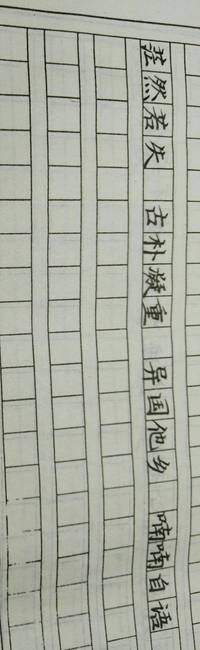 茫然若失 古朴凝重 异国他乡 喃喃自语